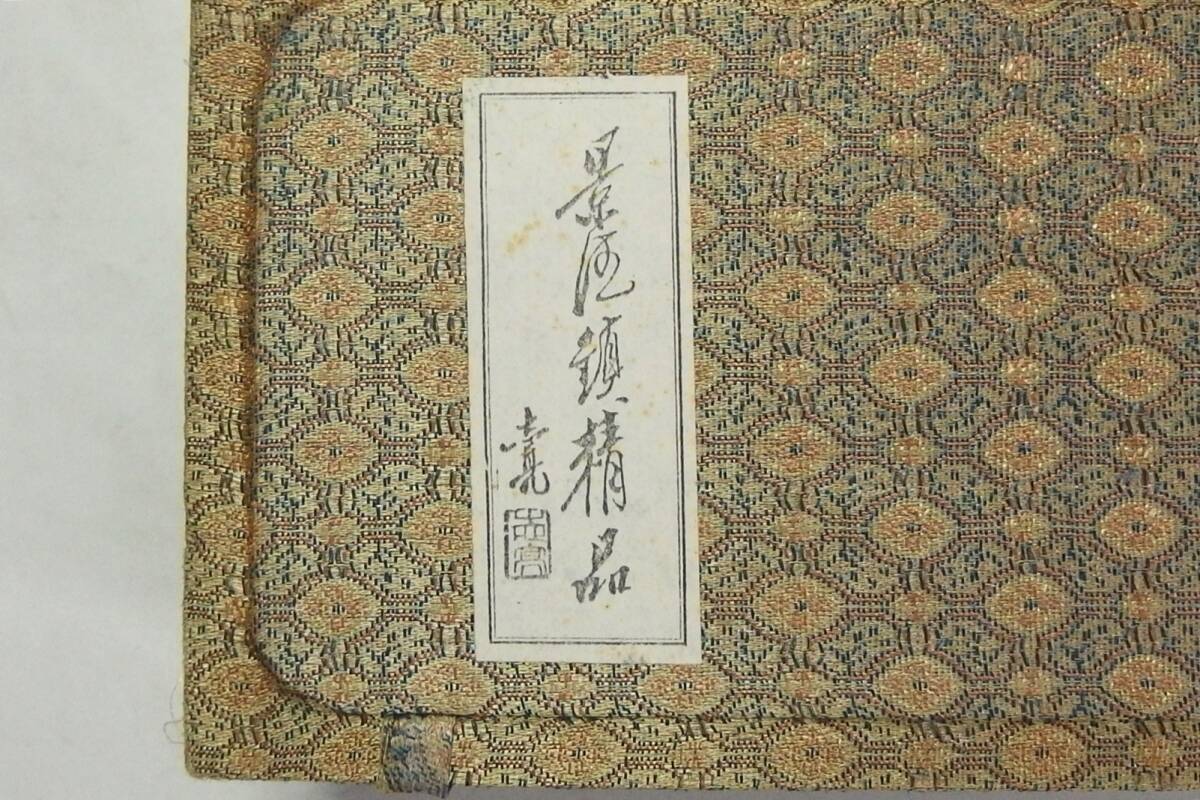 景德鎮精品